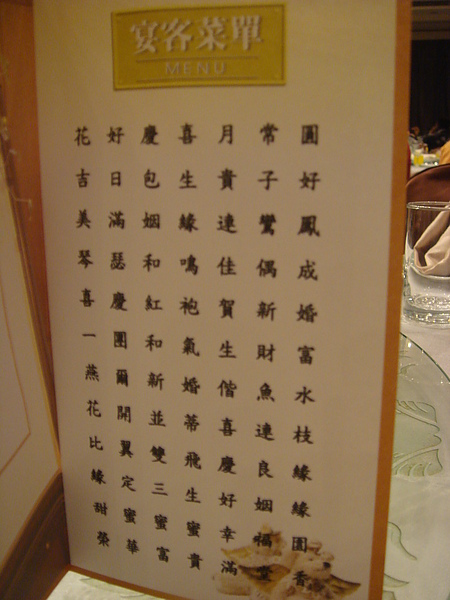 宴客菜單
MENU
花好慶喜月常圓
吉日包生貴子好
美滿姻緣連鸞鳳
琴瑟和鳴佳偶成
喜慶紅袍賀新婚
一團和氣生財富
燕爾新婚偕魚水
花開並蒂喜連枝
比翼雙飛慶良緣
緣定三生好姻緣
甜蜜蜜蜜幸福圓
榮華富貴滿香